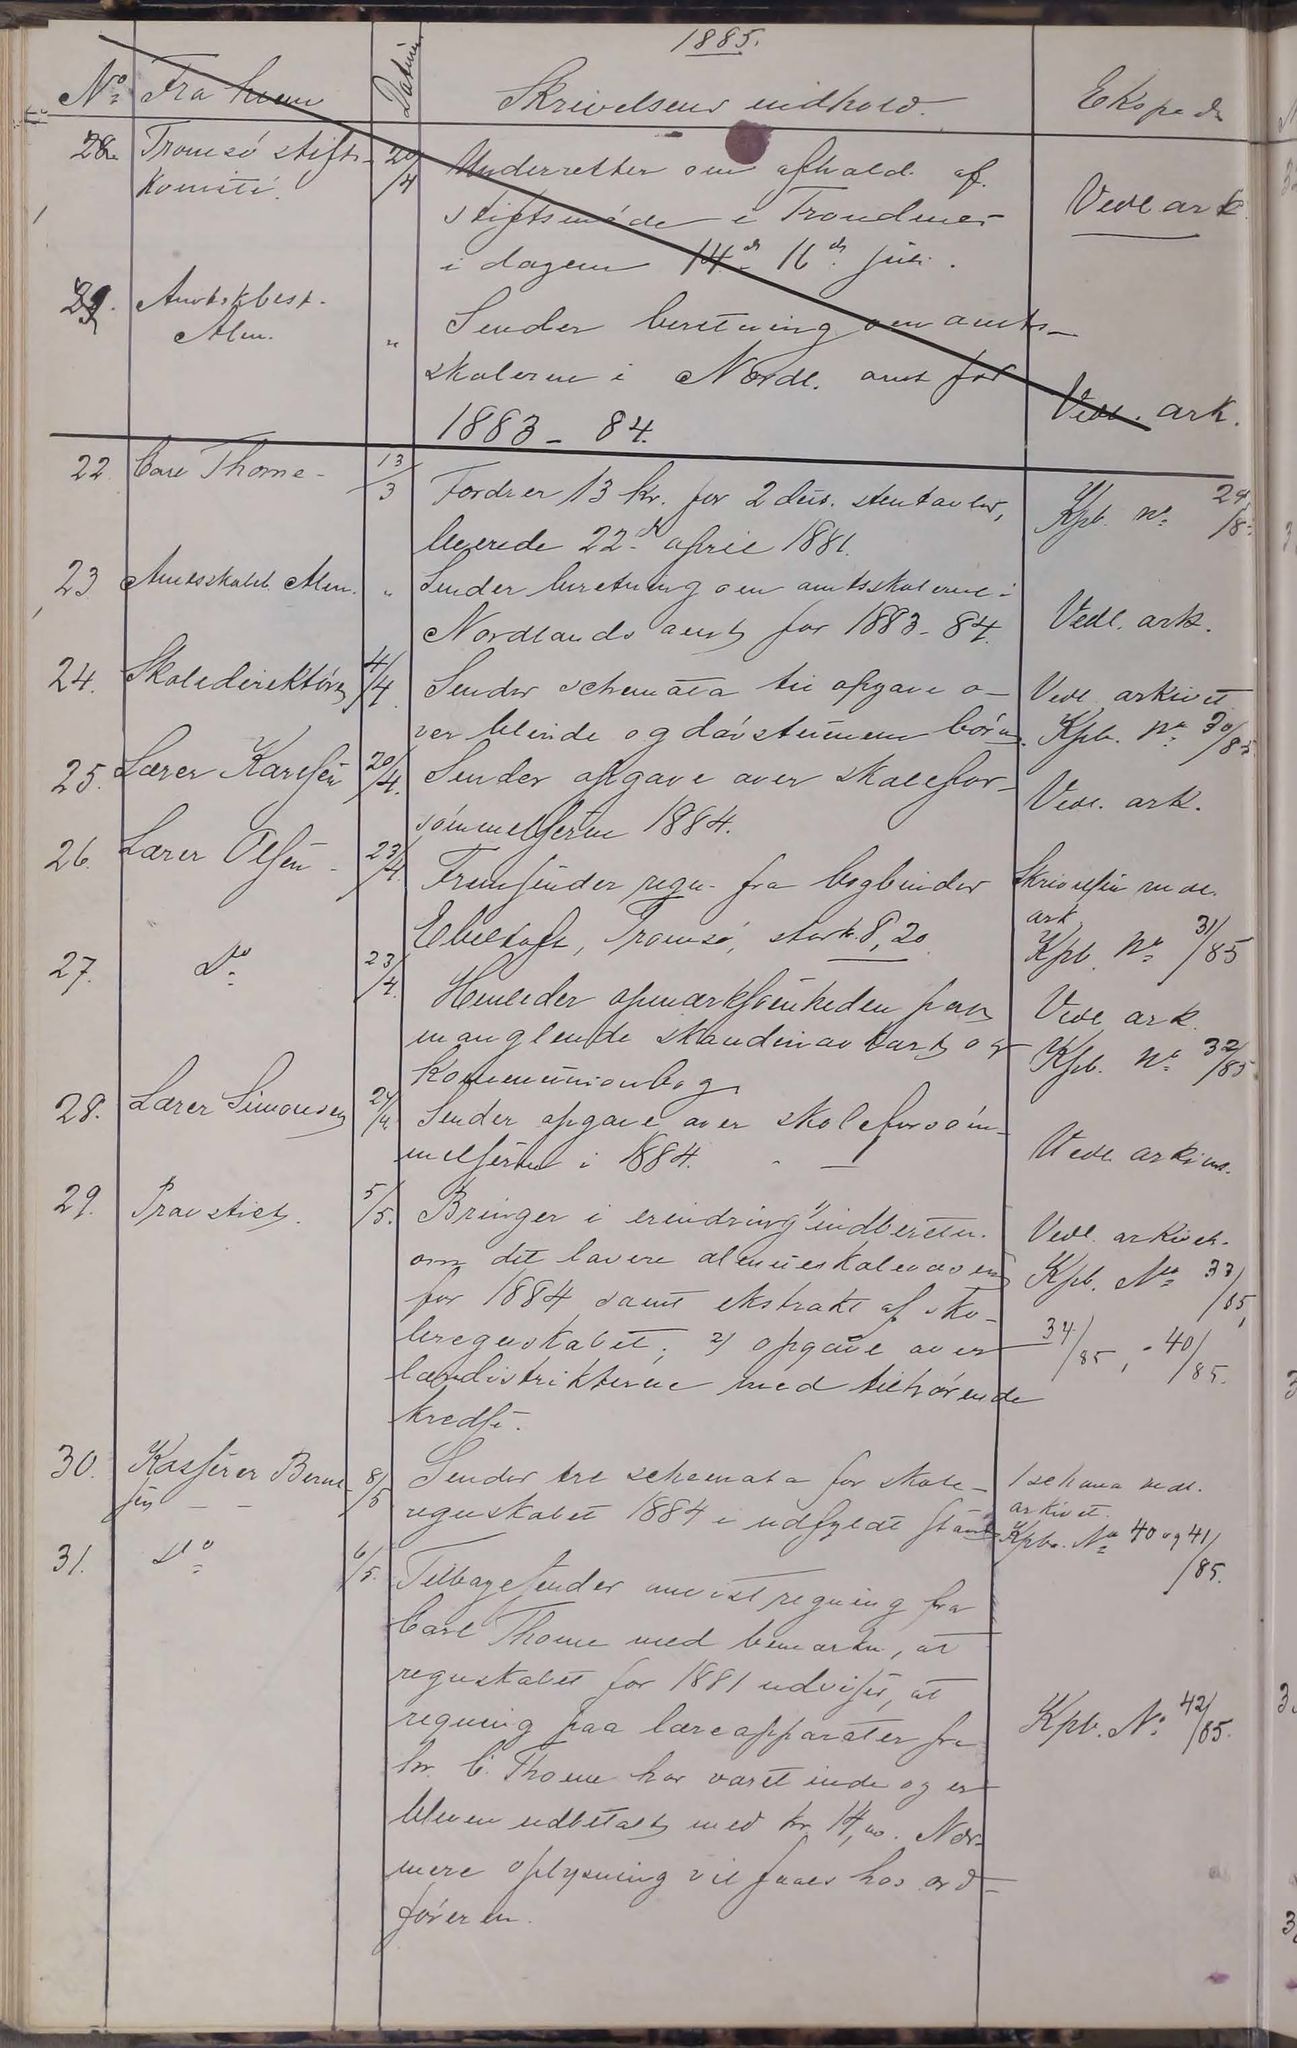 1885.
No Fra hvem Datum Skrivelsens indhold. Ekspeds
28. Tromsø stifts- 20/4 Underretter om afhold. af
komité. stiftsmøde i Trondenes Vedl. ark
i dagene 14de 16de juli.
29. Amtskbest.
Alm. " Sender beretning om amts-
skolerne i Nordl. amt for
1883-84. Vedl. ark.
22 Carl Thome- 13/3 Fordrer 13 kr. for 2 dus. stentavler, Kpb. No 29/85
leverede 22de april 1881.
23 Amtsskolebest. Alm. " Sender beretning om amtsskolerne i
Nordlands amt for 1883-84. Vedl. ark.
24. Skoledirektøren 4/4 Sender schemata til opgave o- Vedl. arkivet
ver blinde og døvstumme børn. Kpb. No 30/85
25. Lærer Karlsen 20/4. Sender opgave over skolefor- Vedl. ark.
sømmelserne 1884.
26. Lærer Olsen - 23/4. Fremsender regn. fra bogbinder Skrivelsen vedl.
ark
Ebeltoft, Tromsø, stort 8,20. Kpb. No 31/85
27. Do 23/4. Henleder opmærksomheden paa Vedl. ark.
manglende skandinav kart og Kpb. No 32/85
kommunionbog
28. Lærer Simonsen 24/4. Sender opgave over skoleforsøm-
melserne i 1884. " — Vedl. arkivet.
29. Provstiet. 5/5. Bringer i erindring 1/ indberetn. Vedl. arkivet.
om det lavere almueskolevæsen Kpb. No 33/85,
for 1884 samt ekstrakt af sko-
leregnskabet; 2/ opgave over 34/85, - 40/85.
landdistrikterne med tilhørende
kredse.
30. Kasserer Bernt- 8/5 Sender tre schemata for skole- 1 schema vedl.
sen — — regnskabet 1884 i udfyldt stand arkivet.
Kpb. No 40 og 41/85.
31. Do 6/5. Tilbagesender anvist regning fra
Carl Thome med bemærkn, at
regnskabet for 1881 udviser, at
regning paa læreapparater fra Kpb. No 42/85.
hr. C. Thome har været inde og er
bleven udbetalt med kr. 14,00. Nær-
mere oplysning vil faaes hos ord-
føreren.